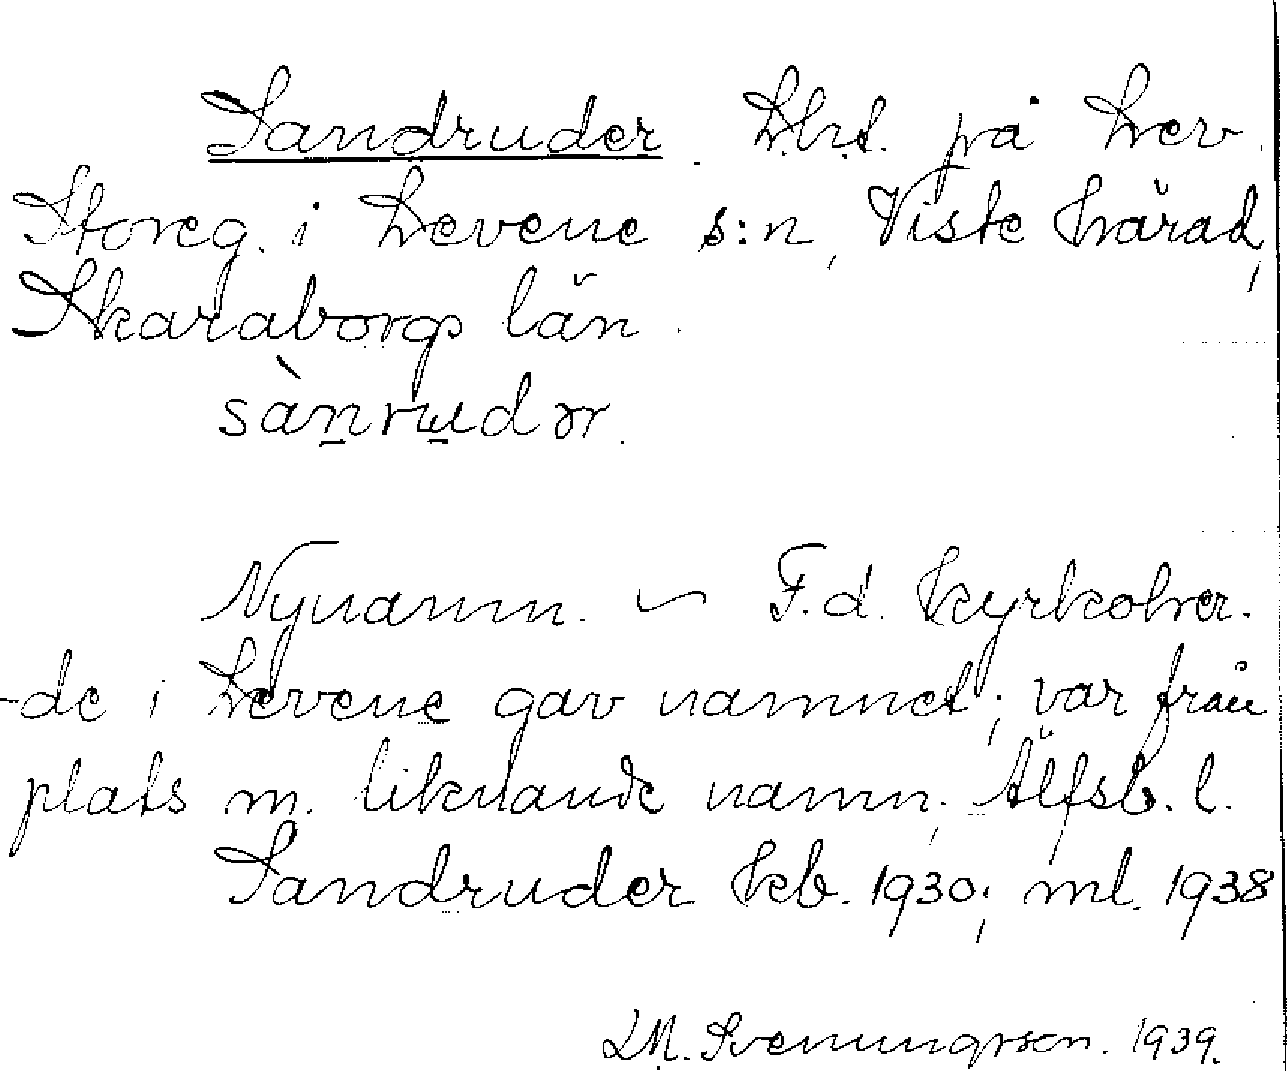 Sandruder. Lht. på Lev.
Storeg. i Levene s:n, Viste härad,
Skaraborgs län.
sànrudər.
Nynamn. – F.d. kyrkoher-
-de i Levene gav namnet; var från
plats m. liknande namn, Älfsb. l.
Sandruder kb. 1930; ml. 1938
LM. Svenungsson. 1939.